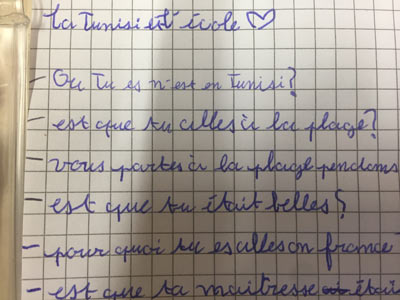 La Tunisi et l'école ♡
- Ou tu es n'est en Tunisi?
- est que tu alles à la plage?
- vous partes à la plage pendans
- est que tu était belles?
- pour quoi tu es alles on france
- est que ta maitresse était